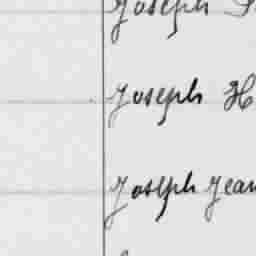 Joseph
Joseph H
Joseph Jean